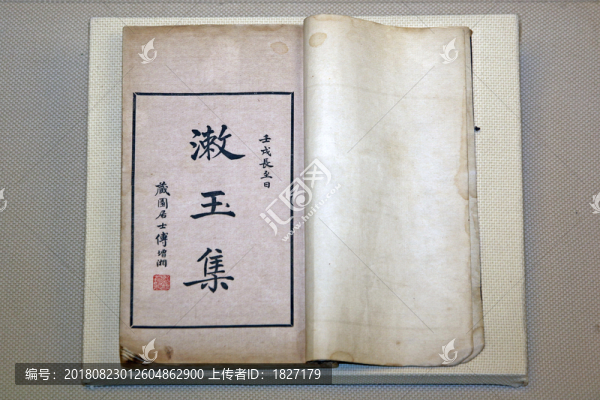 壬戌長至日
漱玉集
藏園居士傅增湘
汇图网
编号:20180823012604862900 上传者ID:1827179